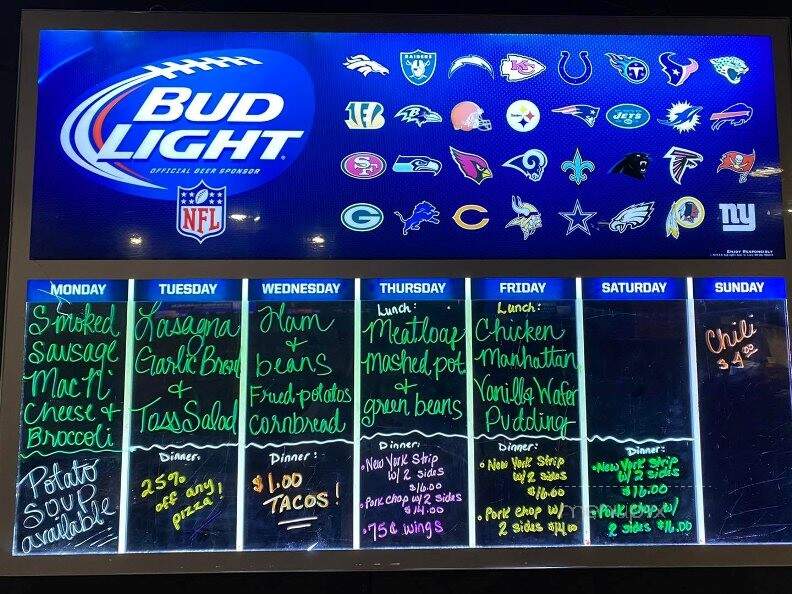 BUD
LIGHT
OFFICIAL BEER SPONSOR
NFL
RAIDERS
KC
Steelers
JETS
SF
G
C
ny
ENJOY RESPONSIBLY
MONDAY
Smoked
Sausage
Mac N'
Cheese +
Broccoli
Potato
Soup
available
TUESDAY
Lasagna
Garlic Bread
&
Toss Salad
Dinner:
25%
off any
pizza!
WEDNESDAY
Ham
&
beans
Fried potatos
cornbread
Dinner:
$1.00
TACOS!
THURSDAY
Lunch:
Meatloaf
mashed pot.
&
green beans
Dinner:
• New York Strip
w/ 2 sides
$16.00
• Pork chop w/ 2 sides
$14.00
• 75¢ wings
FRIDAY
Lunch:
Chicken
manhattan
Vanilla Wafer
Pudding
Dinner:
• New York Strip
w/ 2 sides
$16.00
• Pork chop w/
2 sides $14.00
SATURDAY
Dinner:
• New York Strip
w/ 2 sides
$16.00
Pork Chop w/
2 sides $16.00
SUNDAY
Chili
$4.00